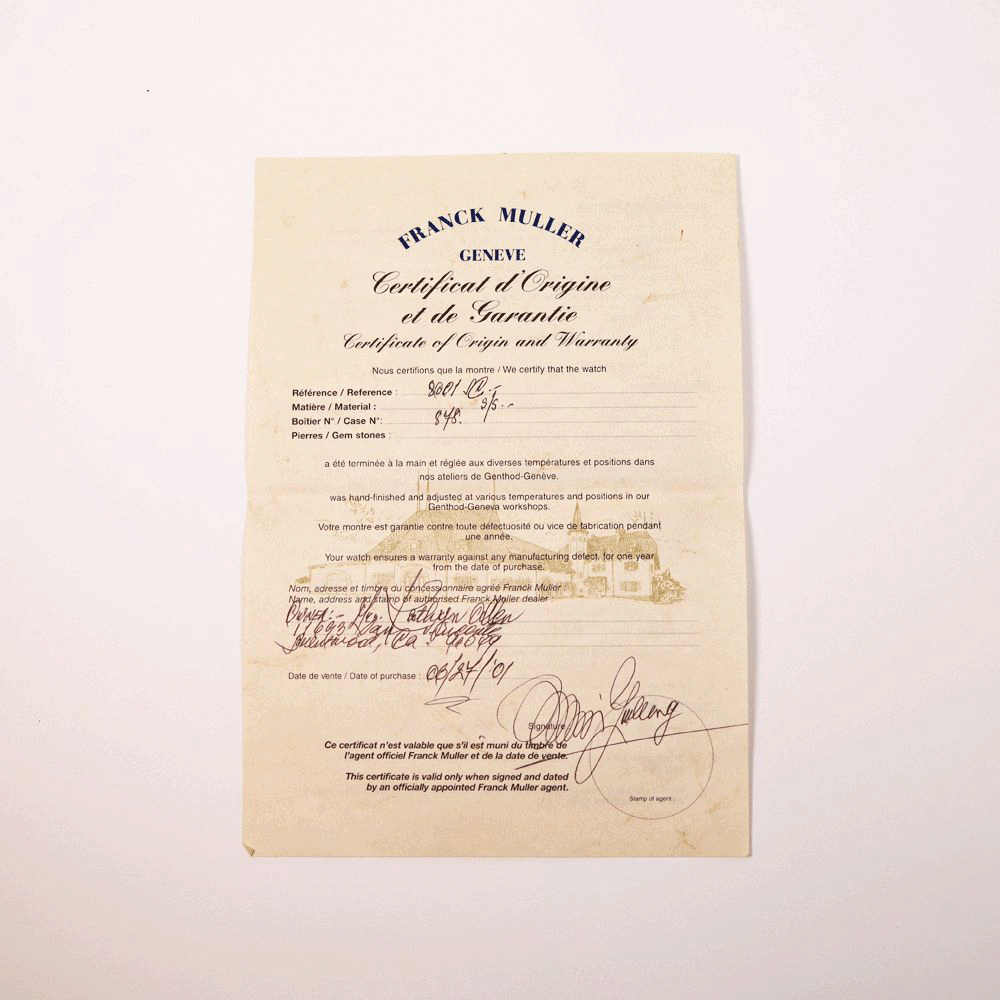 FRANCK MULLER
GENEVE
Certificat d'Origine
et de Garantie
Certificate of Origin and Warranty
Nous certifions que la montre / We certify that the watch
Référence / Reference : 8001
Matière / Material : S/S
Boîtier N° / Case N°: 878.
Pierres / Gem stones :
a été terminée à la main et réglée aux diverses températures et positions dans
nos ateliers de Genthod-Genève.
was hand-finished and adjusted at various temperatures and positions in our
Genthod-Geneva workshops.
Votre montre est garantie contre toute défectuosité ou vice de fabrication pendant
une année.
Your watch ensures a warranty against any manufacturing defect, for one year
from the date of purchase.
Nom, adresse et timbre du concessionnaire agréé Franck Muller
Name, address and stamp of authorised Franck Muller dealer
Owner:- Mrs. Kathryn
11693 San Vicente
Brentwood, Ca. 90049
Date de vente / Date of purchase : 06/27/'01
Signature:
Ce certificat n'est valable que s'il est muni du timbre de
l'agent officiel Franck Muller et de la date de vente.
This certificate is valid only when signed and dated
by an officially appointed Franck Muller agent.
Stamp of agent :